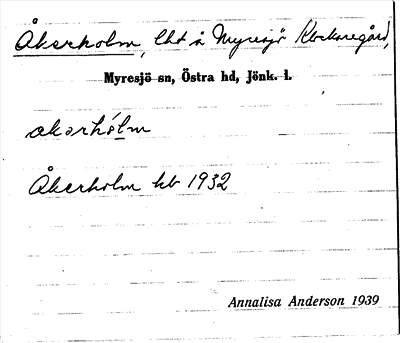 Åkerholm, lht å Myresjö Klockaregård,
Myresjö sn, Östra hd, Jönk. l.
akərhólm
Åkerholm kb 1932
Annalisa Anderson 1939